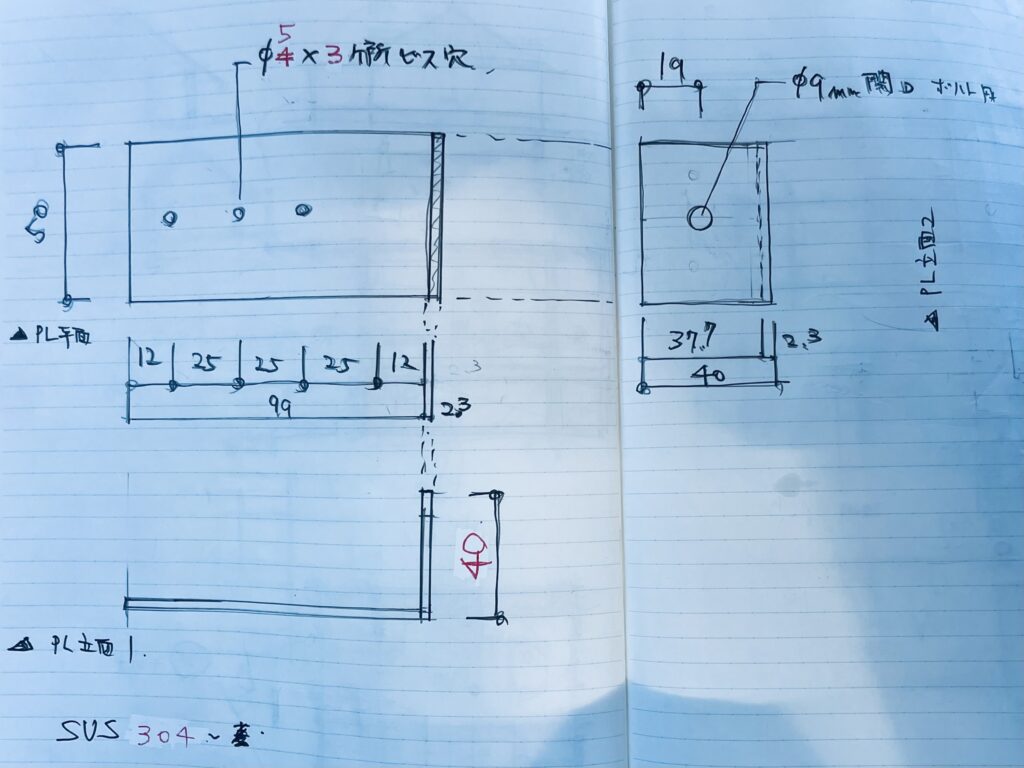 5
φ4×3ヶ所ビス穴
19
φ9mm開口 ボルト用
50
▲PL平面
12 25 25 25 12
99
2.3
2.3
37.7
2.3
40
▲PL立面2
40
▲PL立面1.
SUS 304